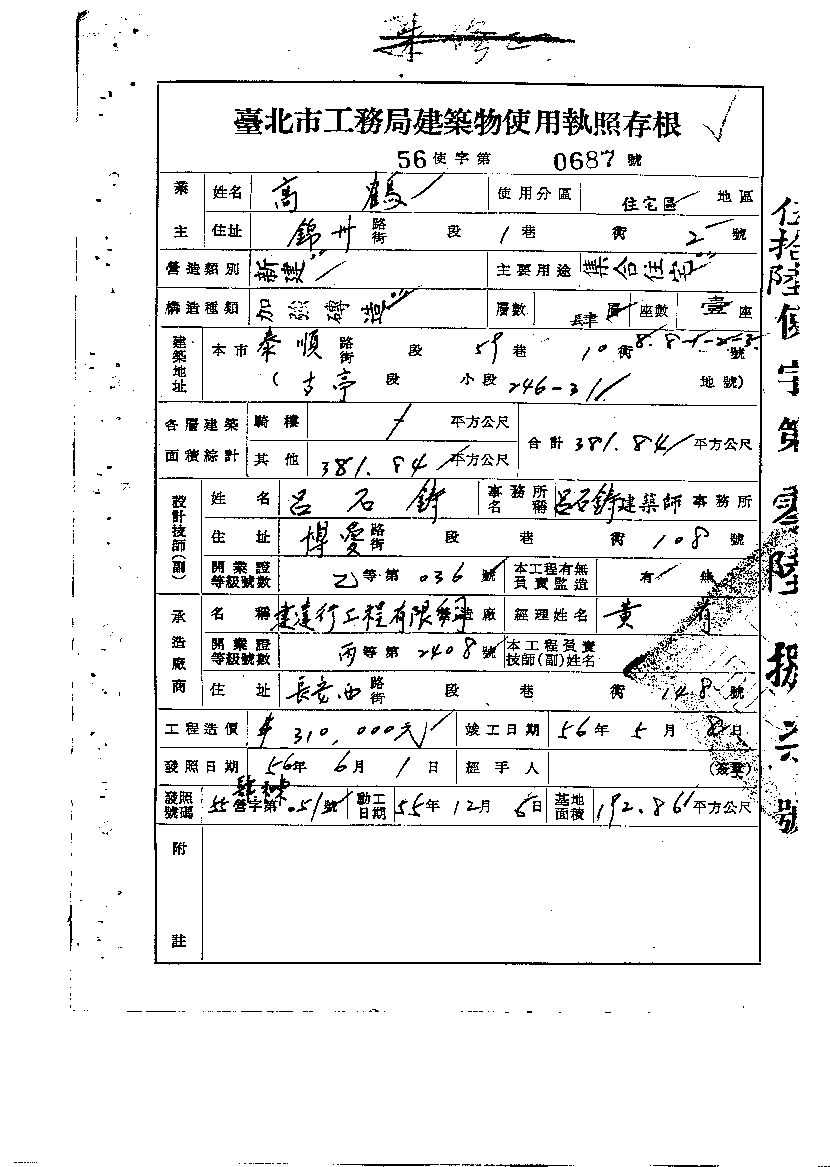 臺北市工務局建築物使用執照存根
56使字第 0687 號
業主 姓名 高 鶴 使用分區 住宅區 地區
住址 錦州 路街 段 1 巷 衖 2 號
營造類別 新建 主要用途 集合住宅
構造種類 加強磚造 層數 肆 層 座數 壹 座
建築地址 本市 泰順 路街 段 59 巷 10 衖 8.8-1-2-3 號
(古亭 段 小段 246-31 地號)
各層建築面積綜計 騎樓 / 平方公尺 合計 381.84 平方公尺
其他 381.84 平方公尺
設計技師(副) 姓名 呂石 事務所名稱 呂石 建築師事務所
住址 博愛 路街 段 巷 衖 108 號
開業證等級號數 乙等第 036 號 本工程有無負責監造 有 無
承造廠商 名稱 建達行工程有限 營造廠 經理姓名 黃
開業證等級號數 丙等第 2408 號 本工程負責技師(副)姓名
住址 長安西 路街 段 巷 衖 148 號
工程造價 310,000元 竣工日期 56年 5月 8日
發照日期 56年 6月 1日 經手人 (簽章)
發照號碼 55 營字第 051 號 動工日期 55年 12月 6日 基地面積 192.86 平方公尺
附註
伍拾陸使字第零陸捌 號